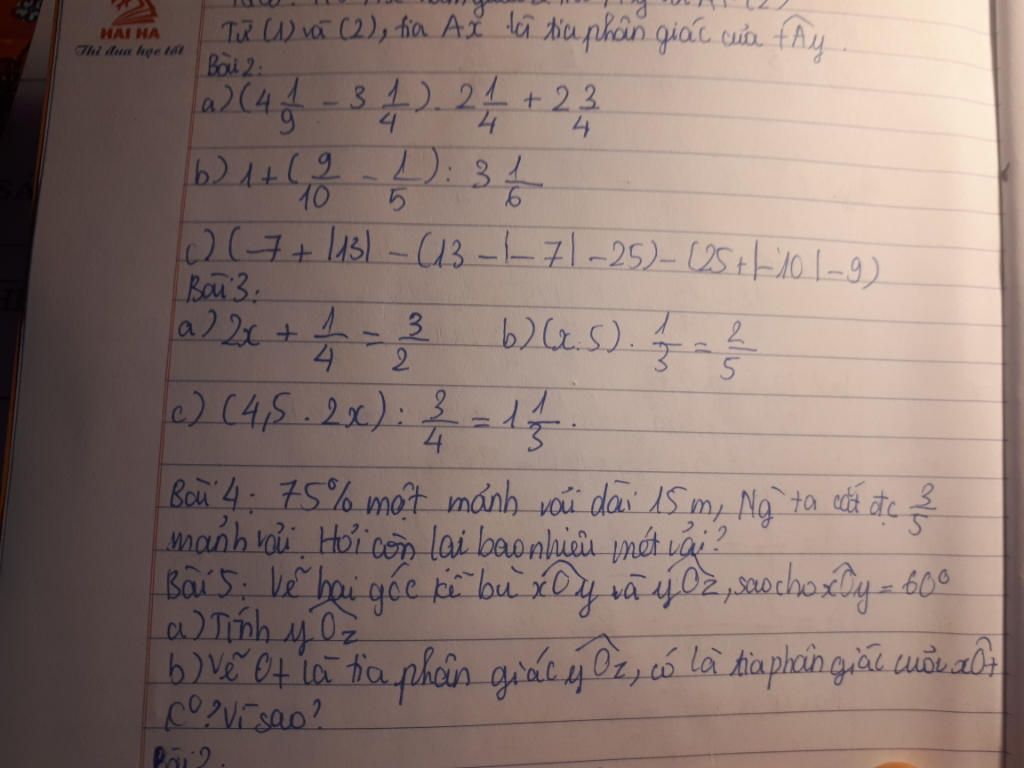 HAI HA
Thi đua học tốt
Từ (1) và (2), tia Ax là tia phân giác của tAy.
Bài 2:
a) (4 1/9 - 3 1/4) . 2 1/4 + 2 3/4
b) 1 + (9/10 - 1/5) : 3 1/6
c) (-7 + |13| - (13 - |-7| - 25) - (25 + |-10| - 9)
Bài 3:
a) 2x + 1/4 = 3/2 b) (x.5) . 1/3 = 2/5
c) (4,5 . 2x) : 3/4 = 1 1/3.
Bài 4: 75% một mảnh vải dài 15 m, Ng ta cắt đc 3/5
mảnh vải. Hỏi còn lại bao nhiêu mét vải?
Bài 5: Vẽ hai góc kề bù xOy và yOz, sao cho xOy = 60°
a) Tính yOz
b) Vẽ Ot là tia phân giác yOz, có là tia phân giác của xOt
k°? Vì sao?